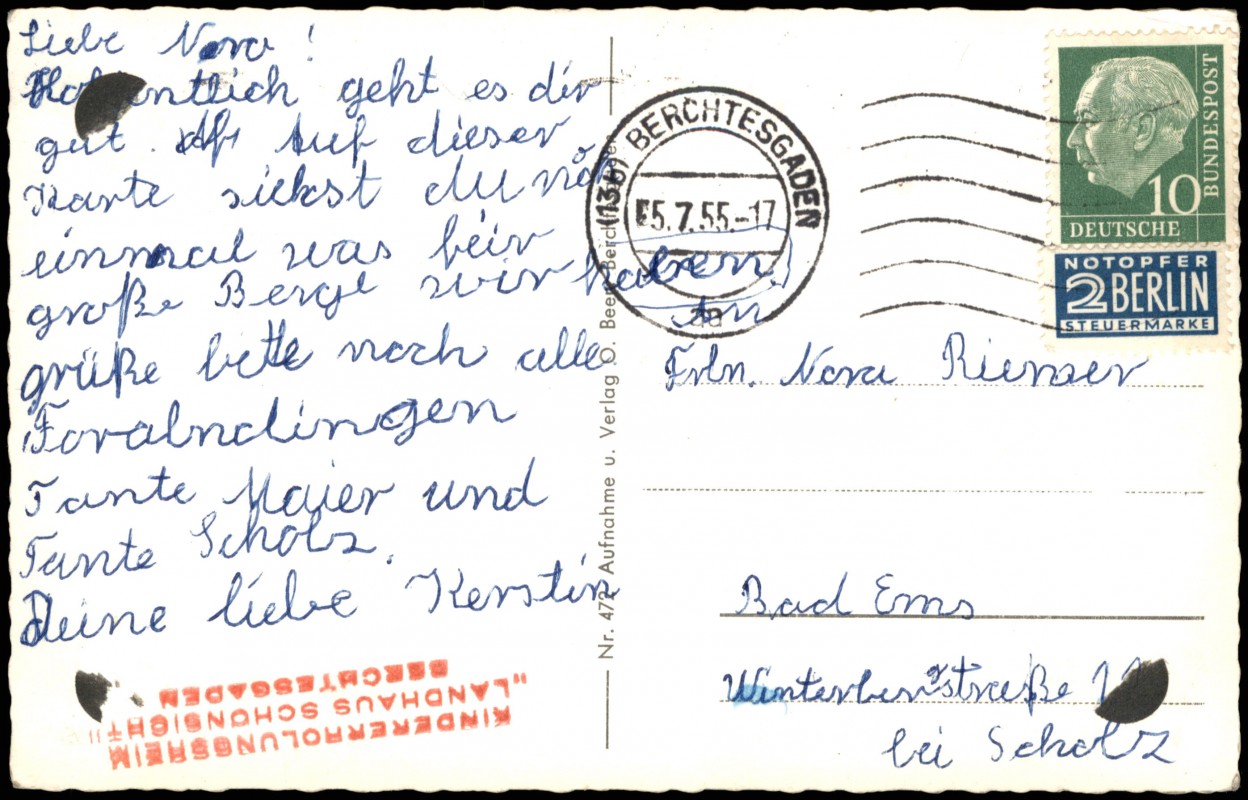 Liebe Nora!
Ho entlich geht es dir
gut. Auf dieser
Karte siehst du noch
einmal was beir
große Berge wir haben.
An
grüße bette noch alle
Tante Maier und
Tante Scholz.
Deine liebe Kerstin
KINDERERHOLUNGSHEIM
„LANDHAUS SCHÖNSICHT"
BERCHTESGADEN
Nr. 472 Aufnahme u. Verlag O. Beer, Berchte
(13b) BERCHTESGADEN
5.7.55.-17
aa
10
DEUTSCHE
BUNDESPOST
NOTOPFER
2 BERLIN
STEUERMARKE
Frln. Nora
Bad Ems
bei Scholz